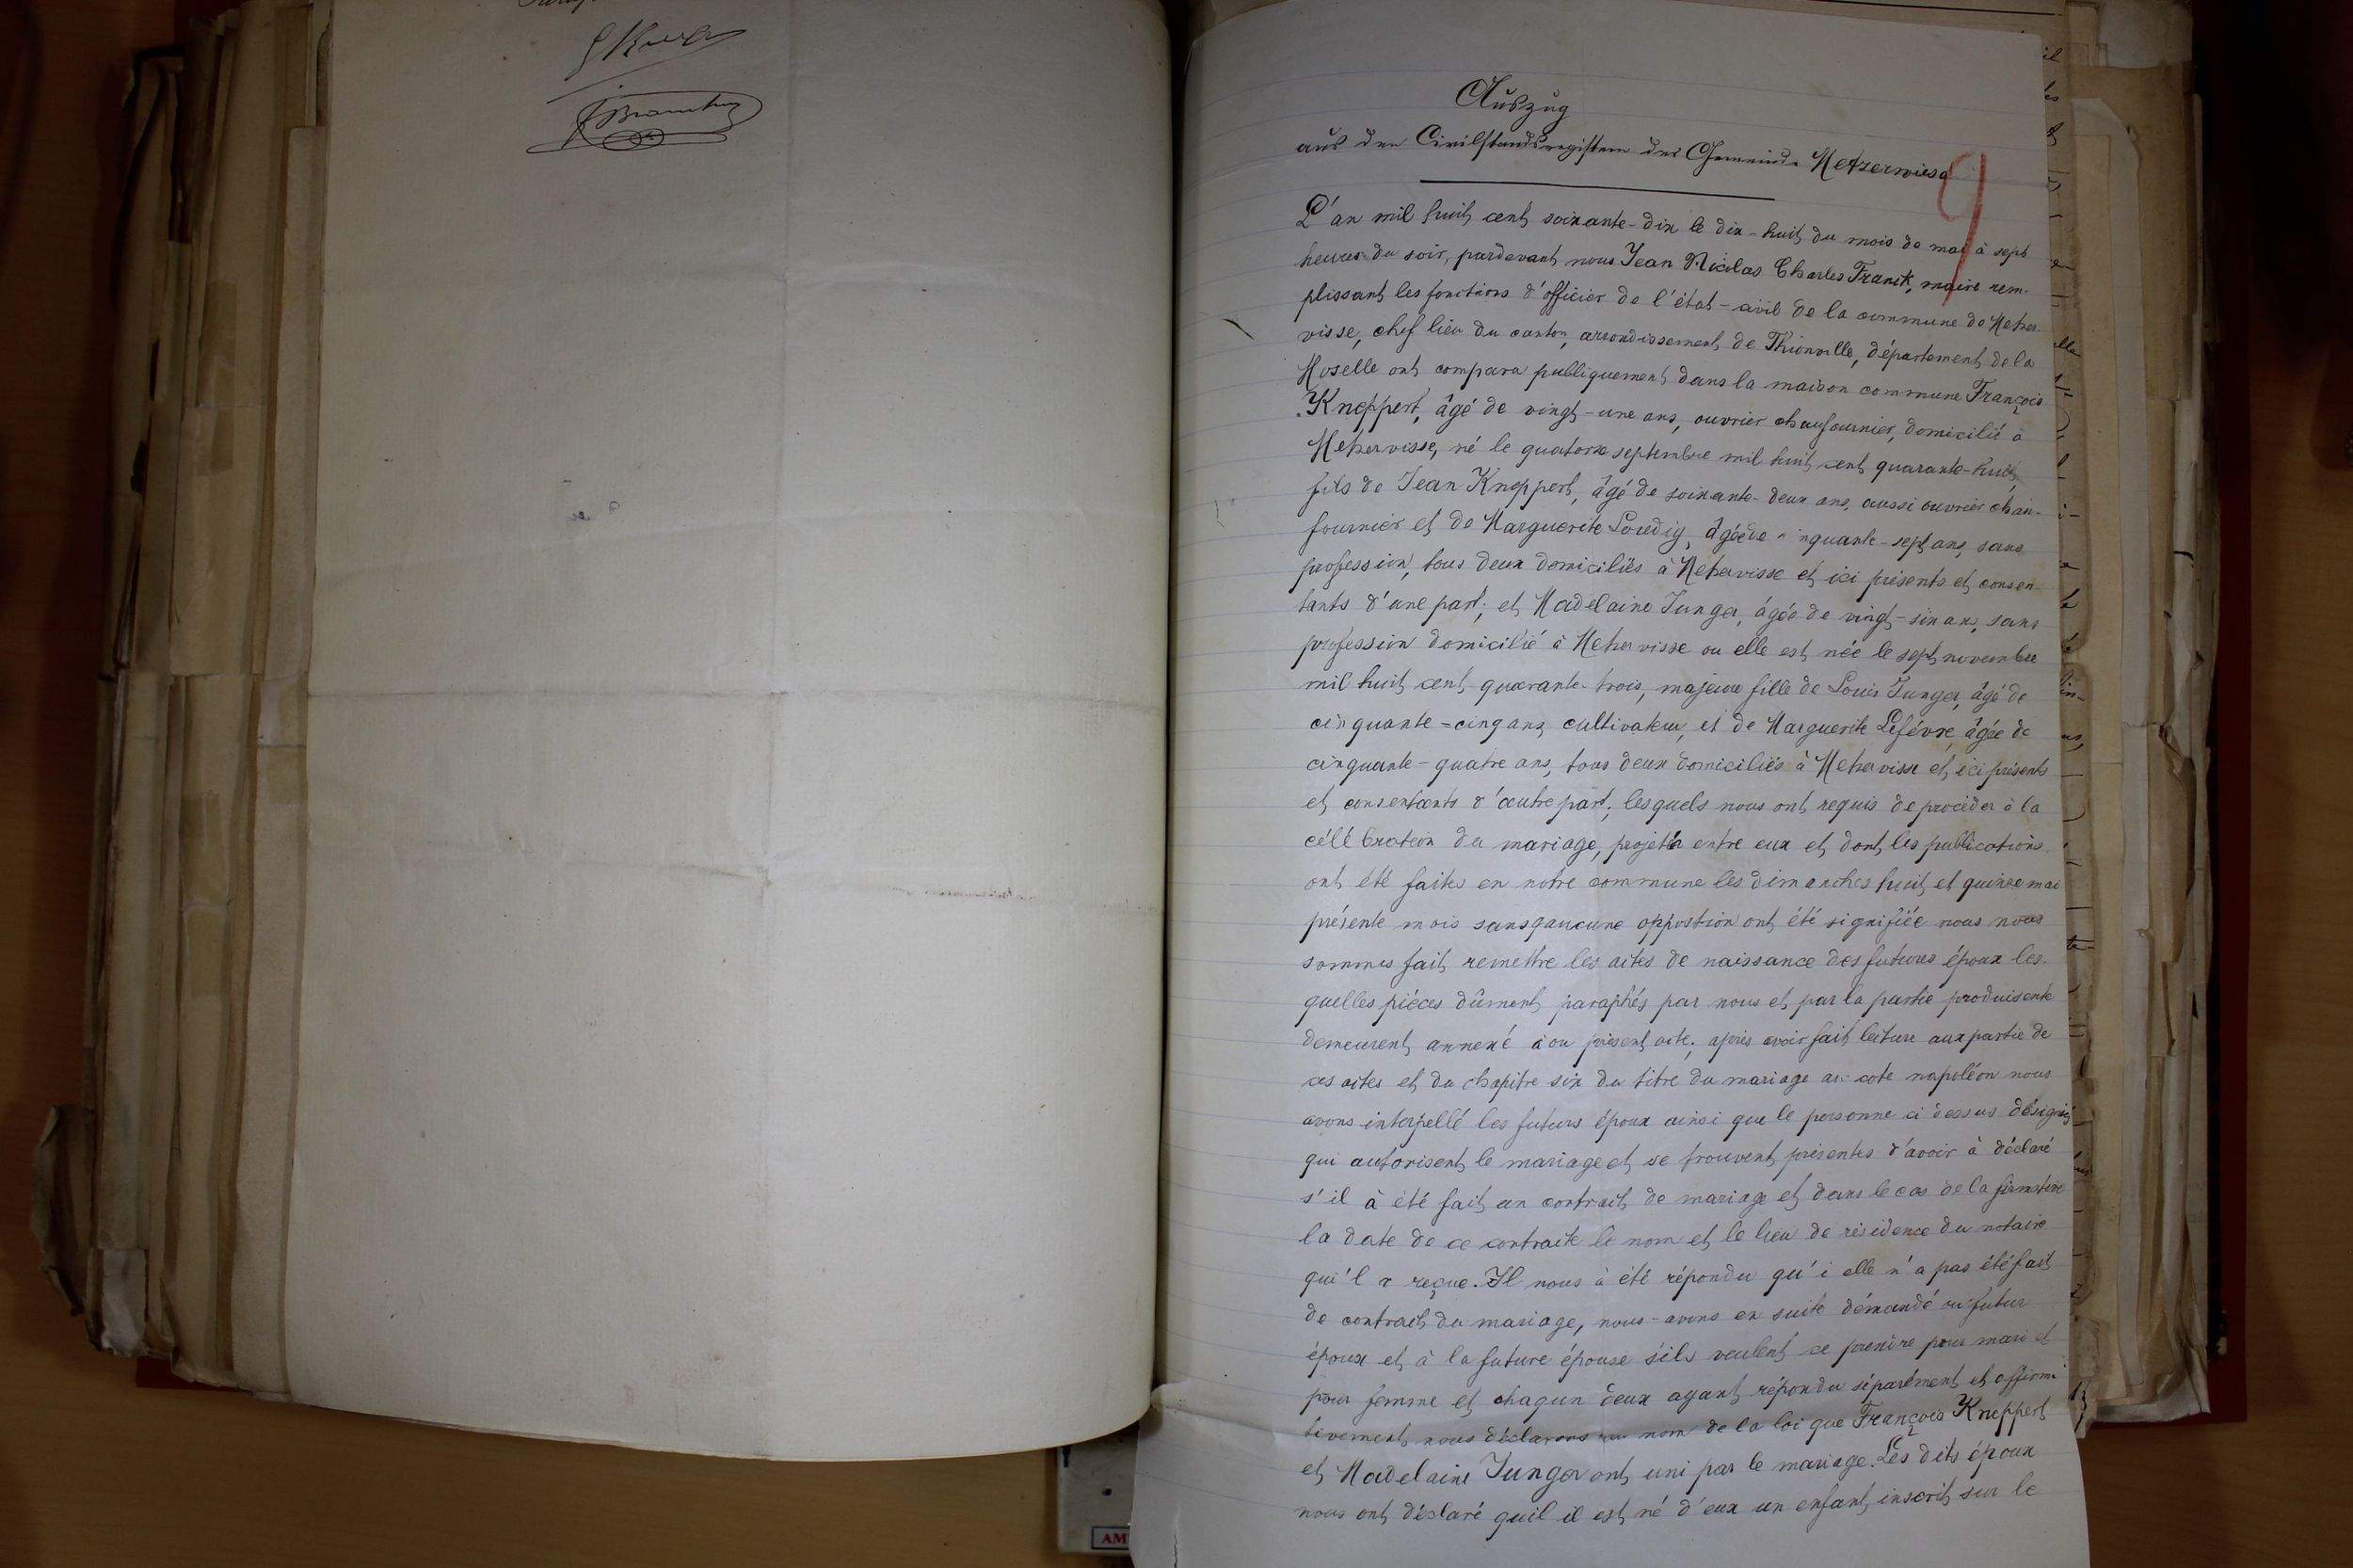 Auszug
aus den Civilstandsregistern der Gemeinde Metzerwiese
9
L'an mil huit cent soixante-dix le dix-huit du mois de mai à sept
heures du soir, pardevant nous Jean Nicolas Charles Franck, maire rem-
plissant les fonctions d'officier de l'état-civil de la commune de Metzer-
visse, chef lieu du canton, arrondissement de Thionville, département de la
Moselle ont comparu publiquement dans la maison commune François
Kneppert, âgé de vingt-une ans, ouvrier chaufournier, domicilié à
Metzervisse, né le quatorze septembre mil huit cent quarante-huit,
fils de Jean Kneppert, âgé de soixante-deux ans, aussi ouvrier chau-
fournier et de Marguerite Loudig, âgée de inquante-sept ans, sans
profession, tous deux domiciliés à Metzervisse et ici présents et consen-
tants d'une part; et Madelaine Junger, âgée de vingt-six ans, sans
profession domicilié à Metzervisse ou elle est née le sept novembre
mil huit cent quarante-trois, majeure fille de Louis Junger, âgé de
cinquante-cinq ans, cultivateur, et de Marguerite Lefévre, âgée de
cinquante-quatre ans, tous deux domiciliés à Metzervisse et ici présents
et consentants d'autre part; lesquels nous ont requis de procéder à la
célébration du mariage, projetér entre eux et dont les publications
ont été faites en notre commune les dimanches huit et quinze mai
présente mois sans qaucune oppostion ont été signifiée nous nous
sommes fait remettre les actes de naissance des futures époux les-
quelles piéces dûment paraphés par nous et par la partie produisente
demeurent annexé à ou présent acte; après avoir fait lecture aux partie de
ces actes et du chapitre six du titre du mariage au cote napoléon nous
avons interpellé les futurs époux ainsi que le personne ci dessus désignés
qui autorisent le mariage et se trouvent présentes d'avoir à déclaré
s'il à été fait un contrait de mariage et dans le cas de la firmative
la date de ce contraite le nom et le lieu de résidence du notaire
qui'l a reçue. Il nous à été répondu qu'i elle n'a pas été fait
de contrait du mariage, nous-avons en suite démandé au futur
époux et à la future épouse s'ils veulent se prendre pour mari et
pour femme et chaqun deux ayant répondu séparément et affirma
tivement nous déclarons au nom de la loi que François Kneppert
et Madelaine Junger ont uni par le mariage. Les dits époux
nous ont déclaré quil il est né d'eux un enfant, inscrit sur le
AM